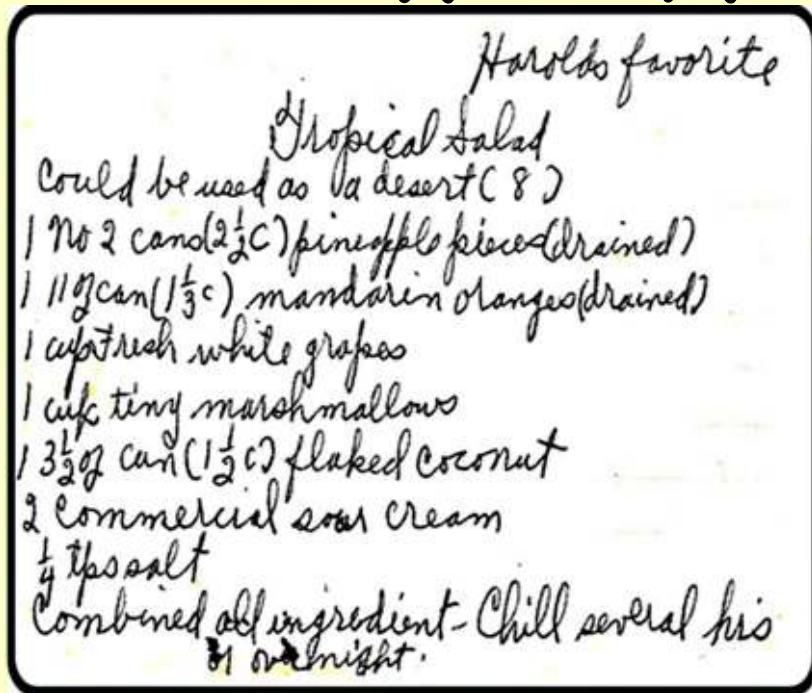 Harolds favorite
Tropical Salad
Could be used as a desert (8)
1 No 2 cans (2 1/2 C) pineapple pieces (drained)
1 11 oz can (1 1/3 c) mandarin oranges (drained)
1 cup fresh white grapes
1 cup tiny marshmallows
1 3 1/2 oz can (1 1/2 c) flaked coconut
2 Commercial sour cream
1/4 tps salt
Combined all ingredient - Chill several hrs
or overnight.